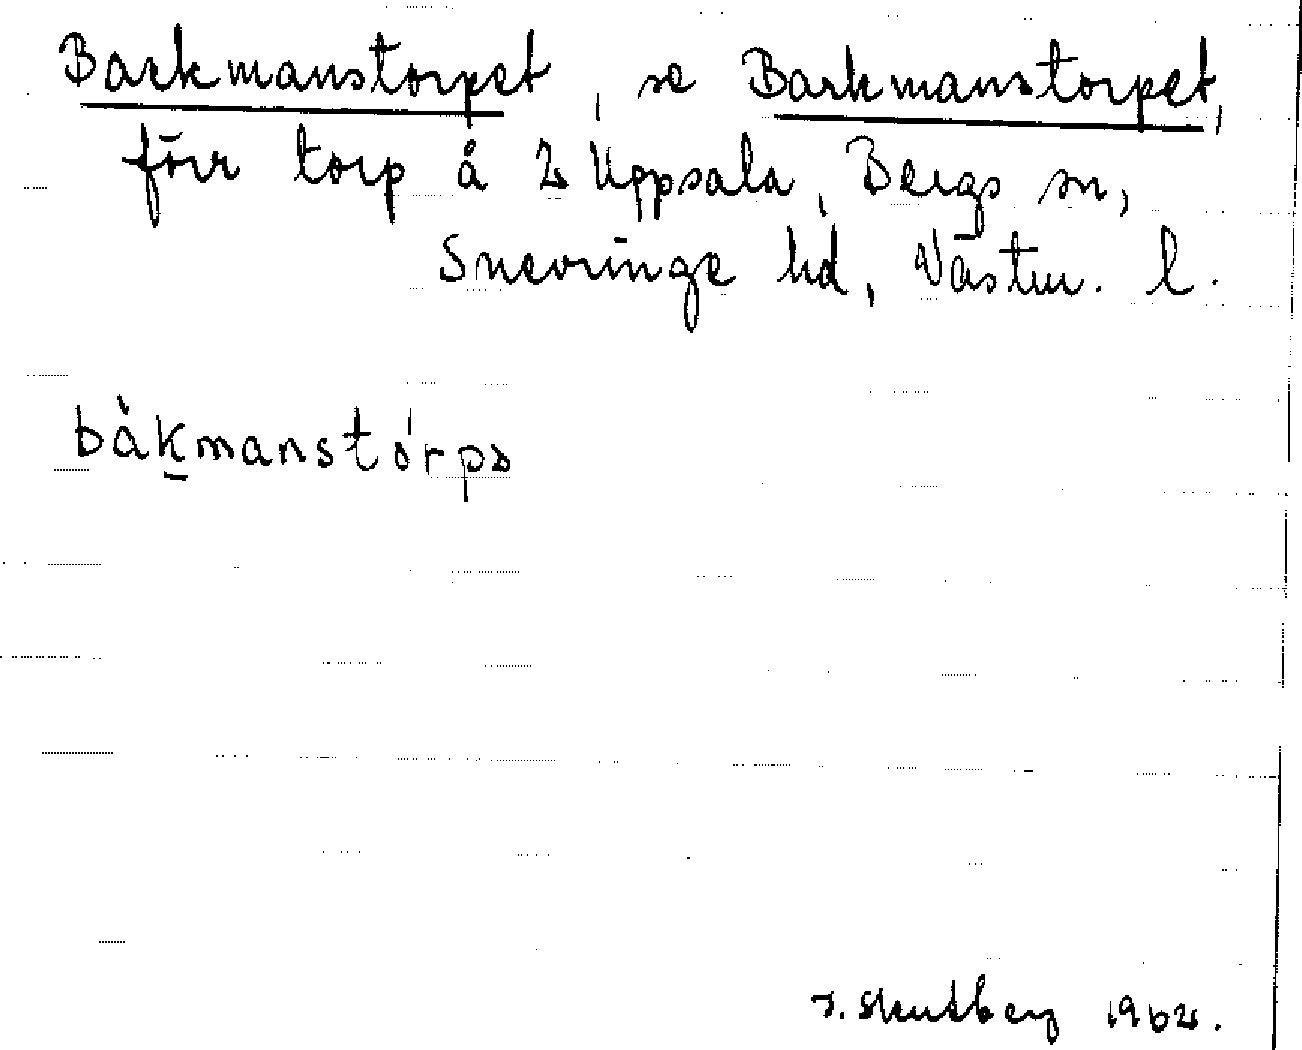 Barkmanstorpet, se Barkmanstorpet,
förr torp å 2 Uppsala, Bergs sn,
Snevringe hd, Västm. l.
bàk̠manstórpə
I. Skutberg 1962.